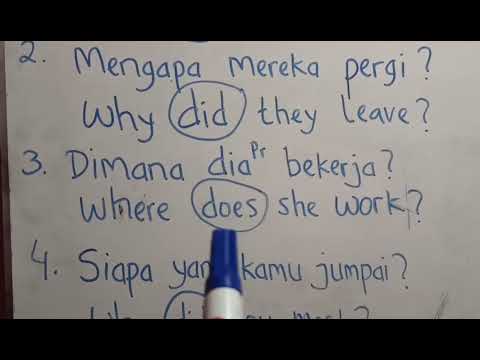 2. Mengapa mereka pergi?
Why did they leave?
3. Dimana dia Pr bekerja?
Where does she work?
4. Siapa kamu jumpai?